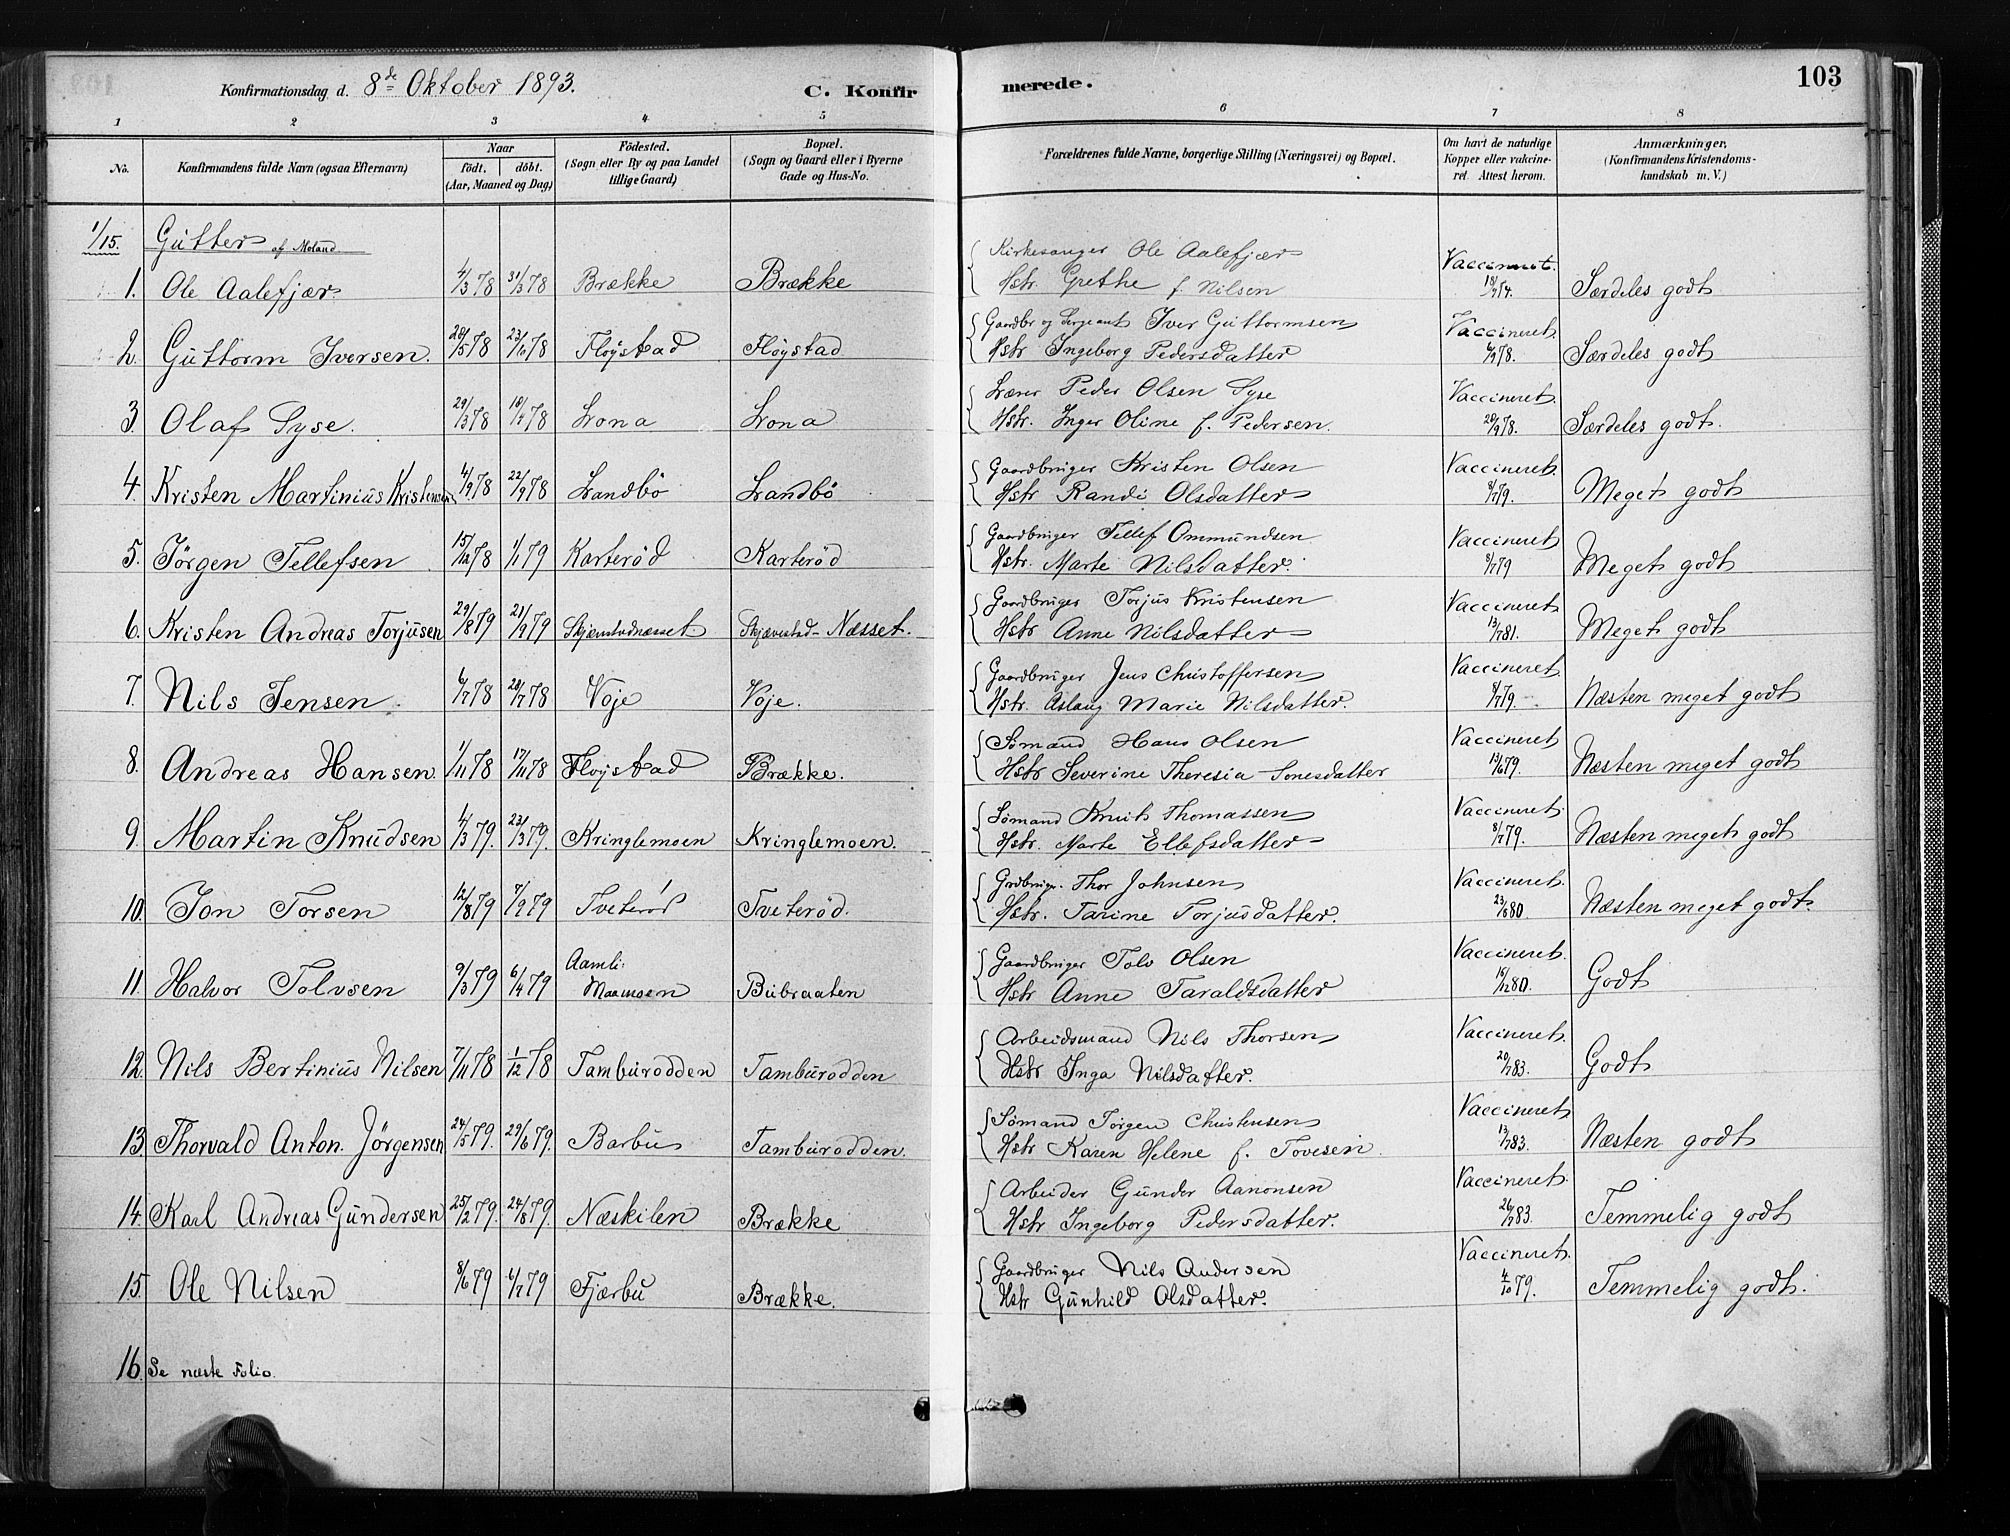 Konfirmationsdag d. 8de Oktober 1893.
C. Konfirmerede.
103
1 2 3 4 5 6 7 8
No.
Konfirmandens fulde Navn (ogsaa Efternavn)
Naar
født. døbt.
(Aar, Maaned og Dag)
Fødested.
(Sogn eller By og paa Landet
tillige Gaard)
Bopæl.
(Sogn og Gaard eller i Byerne
Gade og Hus-No.
Forældrenes fulde Navne, borgerlige Stilling (Næringsvei) og Bopæl.
Om havt de naturlige
Kopper eller vakcine-
ret. Attest herom.
Anmærkninger,
(Konfirmandens Kristendoms-
kundskab m. V.)
1/15. Gutter af Moland
1. Ole Aalefjær 4/3 78 31/3 78 Brække Brække
Kirkesanger Ole Aalefjær
Hstr. Grethe f. Nilsen
Vaccineret.
Særdeles godt
2. Guttorm Iversen. 20/5 78 23/6 78 Fløystad Fløystad
Gaardbr og Sergeant Iver Guttormsen
Hstr Ingeborg Pedersdatter
Vaccineret 6/9 78.
Særdeles godt
3. Olaf Syse. 29/3 78 78 Lrona Lrona
Lærer Peder Olsen Syse
Hstr. Inger Oline f. Pedersen.
Vaccineret. 20/9 78.
Særdeles godt.
4. Kristen Martinius Kristensen 4/9 78 22/9 78 Landbö Landbö
Gaardbruger Kristen Olsen
Hstr Randi Olsdatter
Vaccineret. 8/7 79.
Meget godt
5. Jørgen Tellefsen 15/12 78 1/1 79 Karterød Karterød
Gaardbruger Tellef Ommundsen
Hstr. Marte Nilsdatter.
Vaccineret 8/7 79
Meget godt
6. Kristen Andreas Torjusen 29/8 79 21/9 79 Skjævestadnæsset Skjævestad-Næsset.
Gaardbruger Torjus Kristensen
Hstr Anne Nilsdatter
Vaccineret 13/7 81.
Meget godt
7. Nils Jensen 6/7 78 20/7 78 Voje Voje.
Gaardbruger Jens Christoffersen
Hstr. Aslaug Marie Nilsdatter.
Vaccineret. 8/7 79.
Næsten meget godt
8. Andreas Hansen 1/11 78 17/11 78 Fløystad Brække.
Sømand Hans Olsen
Hstr Severine Theresia Sonesdatter
Vaccineret 13/6 79.
Næsten meget godt
9. Martin Knudsen 4/3 79. 23/3 79. Kringlemoen Kringlemoen.
Sømand Knut Thomassen
Hstr. Marte Ellefsdatter
Vaccineret. 8/7 79.
Næsten meget godt
10. Jon Torsen 12/8 79 7/9 79 Tveterød Tveterød.
Grdbruger. Thor Johnsen
Hstr. Tarine Torjusdatter.
Vaccineret. 80.
Næsten meget godt.
11. Halvor Tolvsen 9/3 79 6/4 79 Aamli: Maamoen Bubraaten
Gaardbruger Tolv Olsen
Hstr Anne Taraldsdatter
Vaccineret. 15/12 80.
Godt
12. Nils Bertinius Nilsen 7/11 78 1/12 78 Tamburodden Tamburodden
Arbeidsmand Nils Thorsen
Hstr Inga Nilsdatter.
Vaccineret. 20/7 83.
Godt
13. Thorvald Anton. Jörgensen 24/5 79. 29/6 79. Barbu Tamburodden.
Sømand Jørgen Christensen
Hstr Karen Helene f. Tovesen.
Vaccineret 13/7 83.
Næsten godt
14. Karl Andreas Gundersen 25/2 79. 24/8 79. Næskilen Brække
Arbeider Gunder Aanonsen
Hstr Ingeborg Pedersdatter.
Vaccineret. 83.
Temmelig godt
15. Ole Nilsen 8/6 79 6/7 79 Fjærbu Brække.
Gaardbruger Nils Andersen
Hstr Gunhild Olsdatter.
Vaccineret. 4/10 79.
Temmelig godt.
16. Se næste Folio.